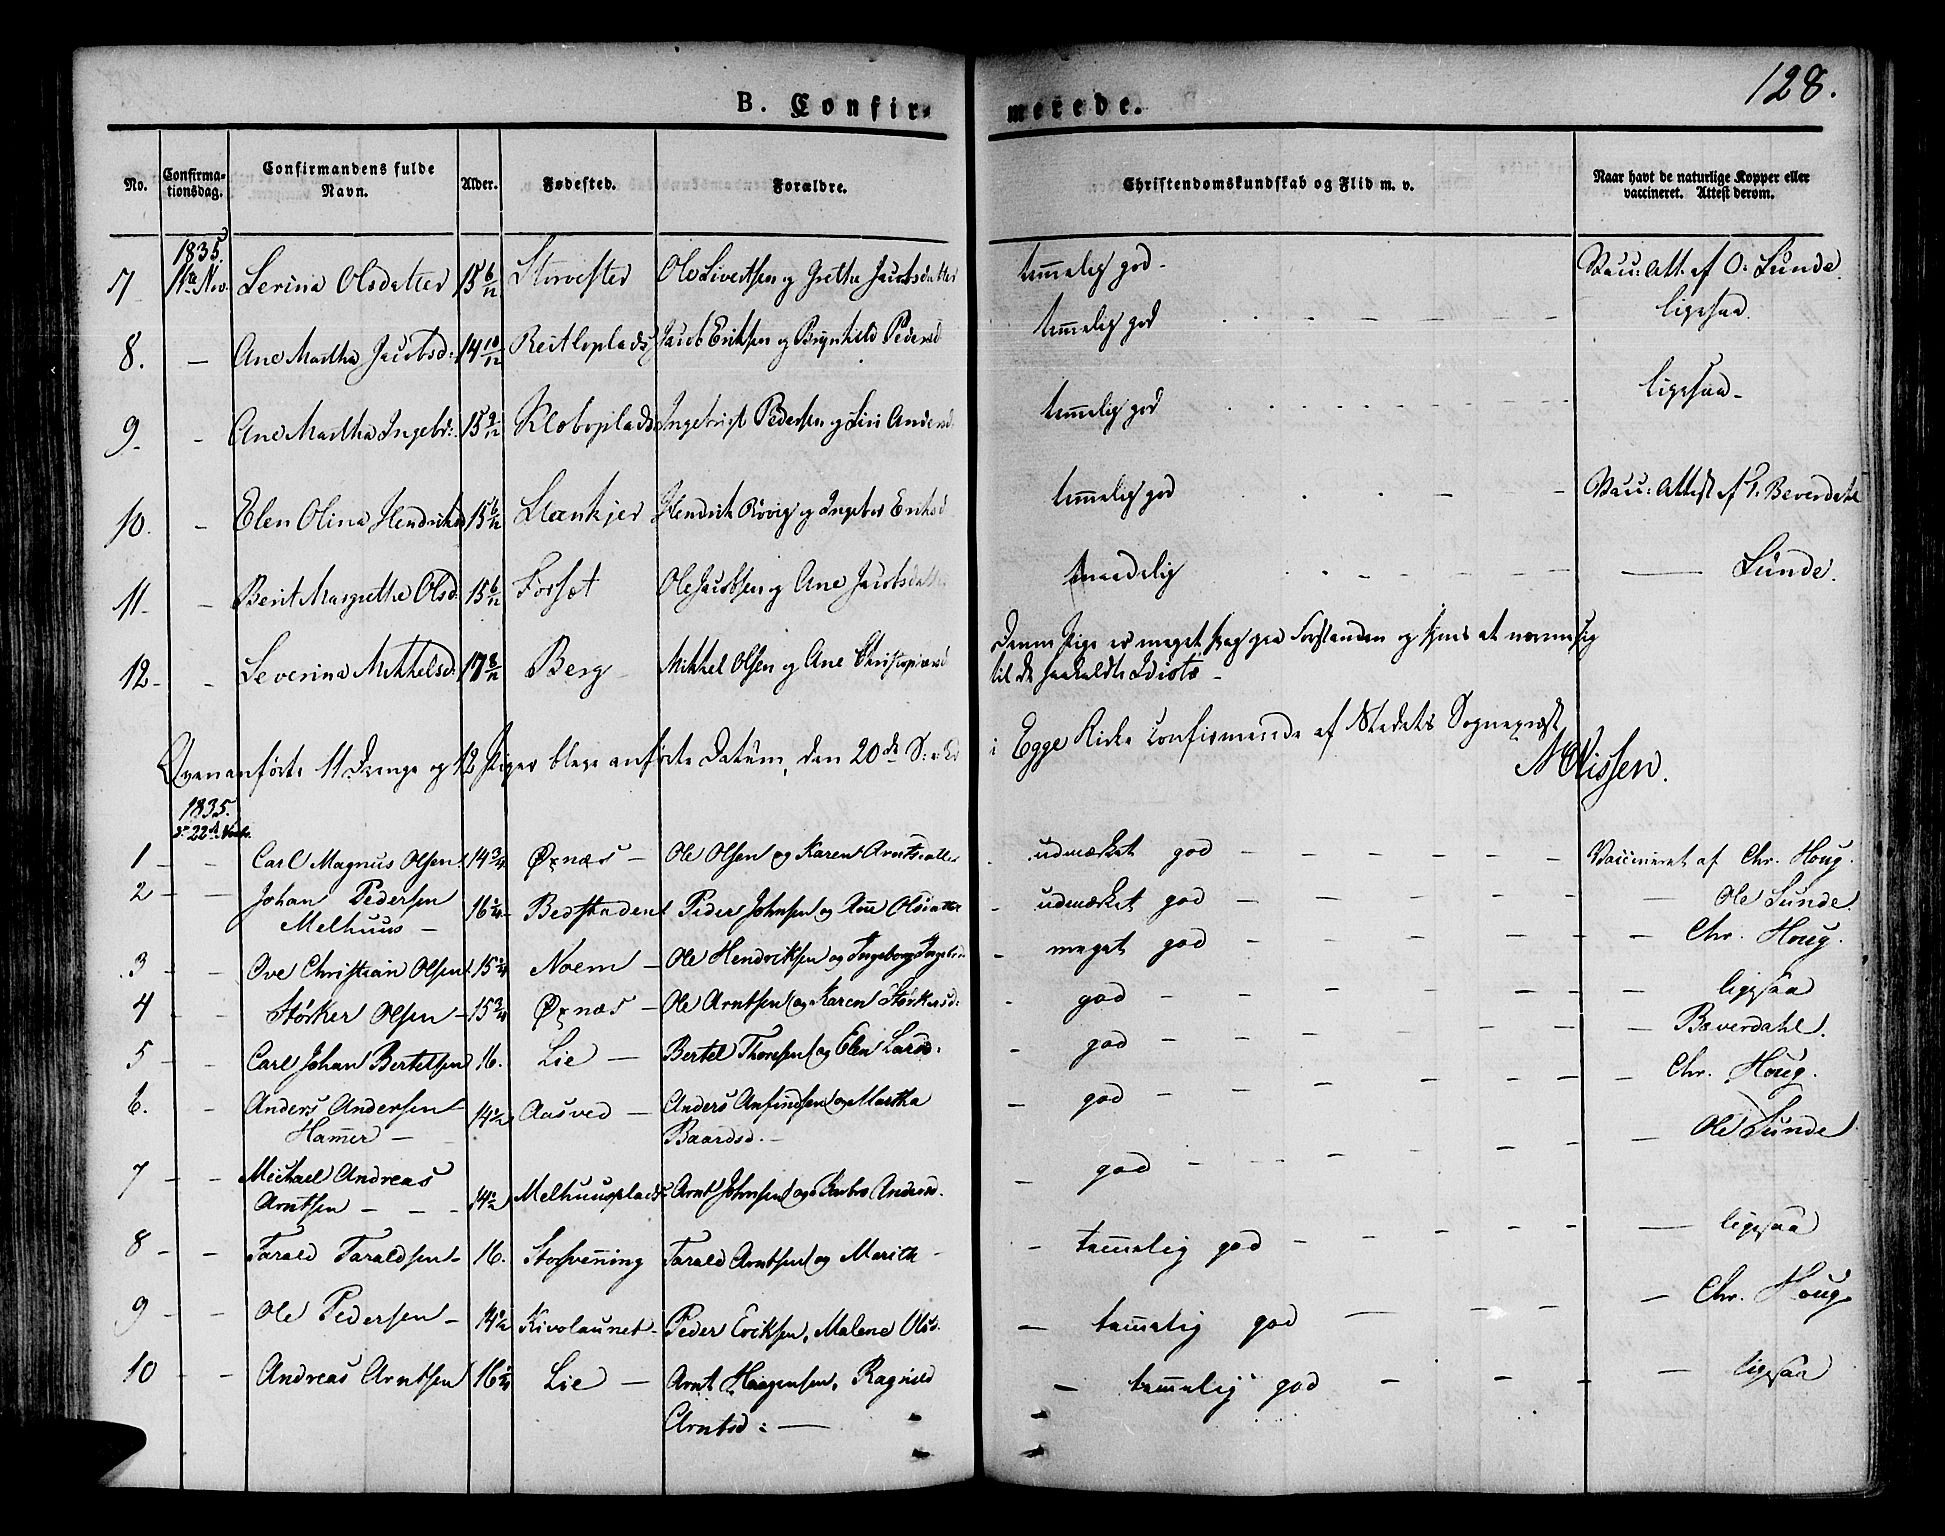 128.
B. Confirmerede.
No. Confirmationsdag. Confirmandens fulde Navn. Alder. Fødested. Forældre. Christendomskundskab og Flid m. v. Naar havt de naturlige Kopper eller vaccineret. Attest derom.
1835.
7 Nov. Serina Olsdatter 15 6/12 Storvester Ole Sivertsen og Grethe Jacobsdatter temmelig god - Vacc: Att: af O. Sunde.
8. — Ane Martha Jacobsd: 14 10/12 Reitloplads Jacob Eriksen og Brynhild Pedersd temmelig god ligesaa
9 - Ane Martha Ingebr: 15 9/12 Kloboplads Ingebrigt Pedersen og Siri Andersd temmelig god ligesaa
10. - Elen Olina Hendriksd 15 6/12 Steenkjer Hendrik og Ingebor Eriksd temmelig god Vacc: Attest af Beverdahl
11 - Berit Margrethe Olsd. 15 6/12 Forset Ole Jacobsen og Ane Jacobsdatter maadelig — Sunde.
12 - Severina Mikkelsd. 17 8/12 Berg Mikkel Olsen og Ane Denne Pige er meget svag paa Forstanden og synes at nærme sig
til de saakaldte Idiote
Ovenanførte 11 Drenge og 12 Piger bleve anførte Datum, den 20de S: e: Tr. i Egge Kirke confirmerede af Stedets Sognepræst
Nissen.
1835.
22de Novbr.
1 — Carl Magnus Olsen 14 3/4 Øxnæs — Ole Olsen og Karen Arntsdatter udmærket god — Vaccineret af Chr. Houg.
2 — Johan Pedersen
Melhuus — 16 1/4 Bedstaden Peder Johnsen og Ane Olsdatter udmærket god — Ole Sunde.
3 — Ove Christian Olsen 15 Noem — Ole Hendriksen og Ingeborg meget god — Chr. Houg.
4 — Størker Olsen — 15 3/4 Øxnæs — Ole Arntsen og Karen Størkersd: god — ligesaa
5 — Carl Johan Bertelsen 16. Lie — Bertel Thoresen og Elen Larsd: god — Bæverdahl.
6. — Anders Andersen
Hamer — 14 1/2 Aasved — Anders Anfindsen og Martha
Baardsd. — god — Chr. Houg.
7 — Michael Andreas
Arntsen — 14 1/2 Melhuusplads Arnt Johnsen og Andersd. god — Ole Sunde
8 — Tarald Taraldsen — 16. Storvening Tarald Arntsen og Marith — temmelig god — ligesaa
9 — Ole Pedersen — 14 1/2 Kivolaunet — Peder Eriksen, Malene Olsd. temmelig god — Chr. Houg.
10 — Andreas Arntsen 16 1/4 Lie — Arnt Haagensen, Ragnild
Arntsd: — temmelig god — ligesaa